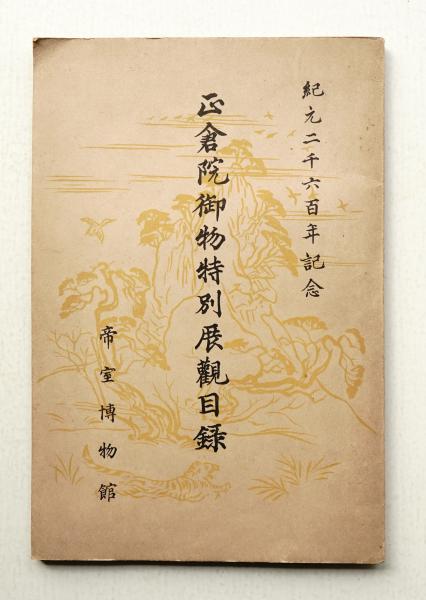 紀元二千六百年記念
正倉院御物特別展觀目錄
帝室博物館